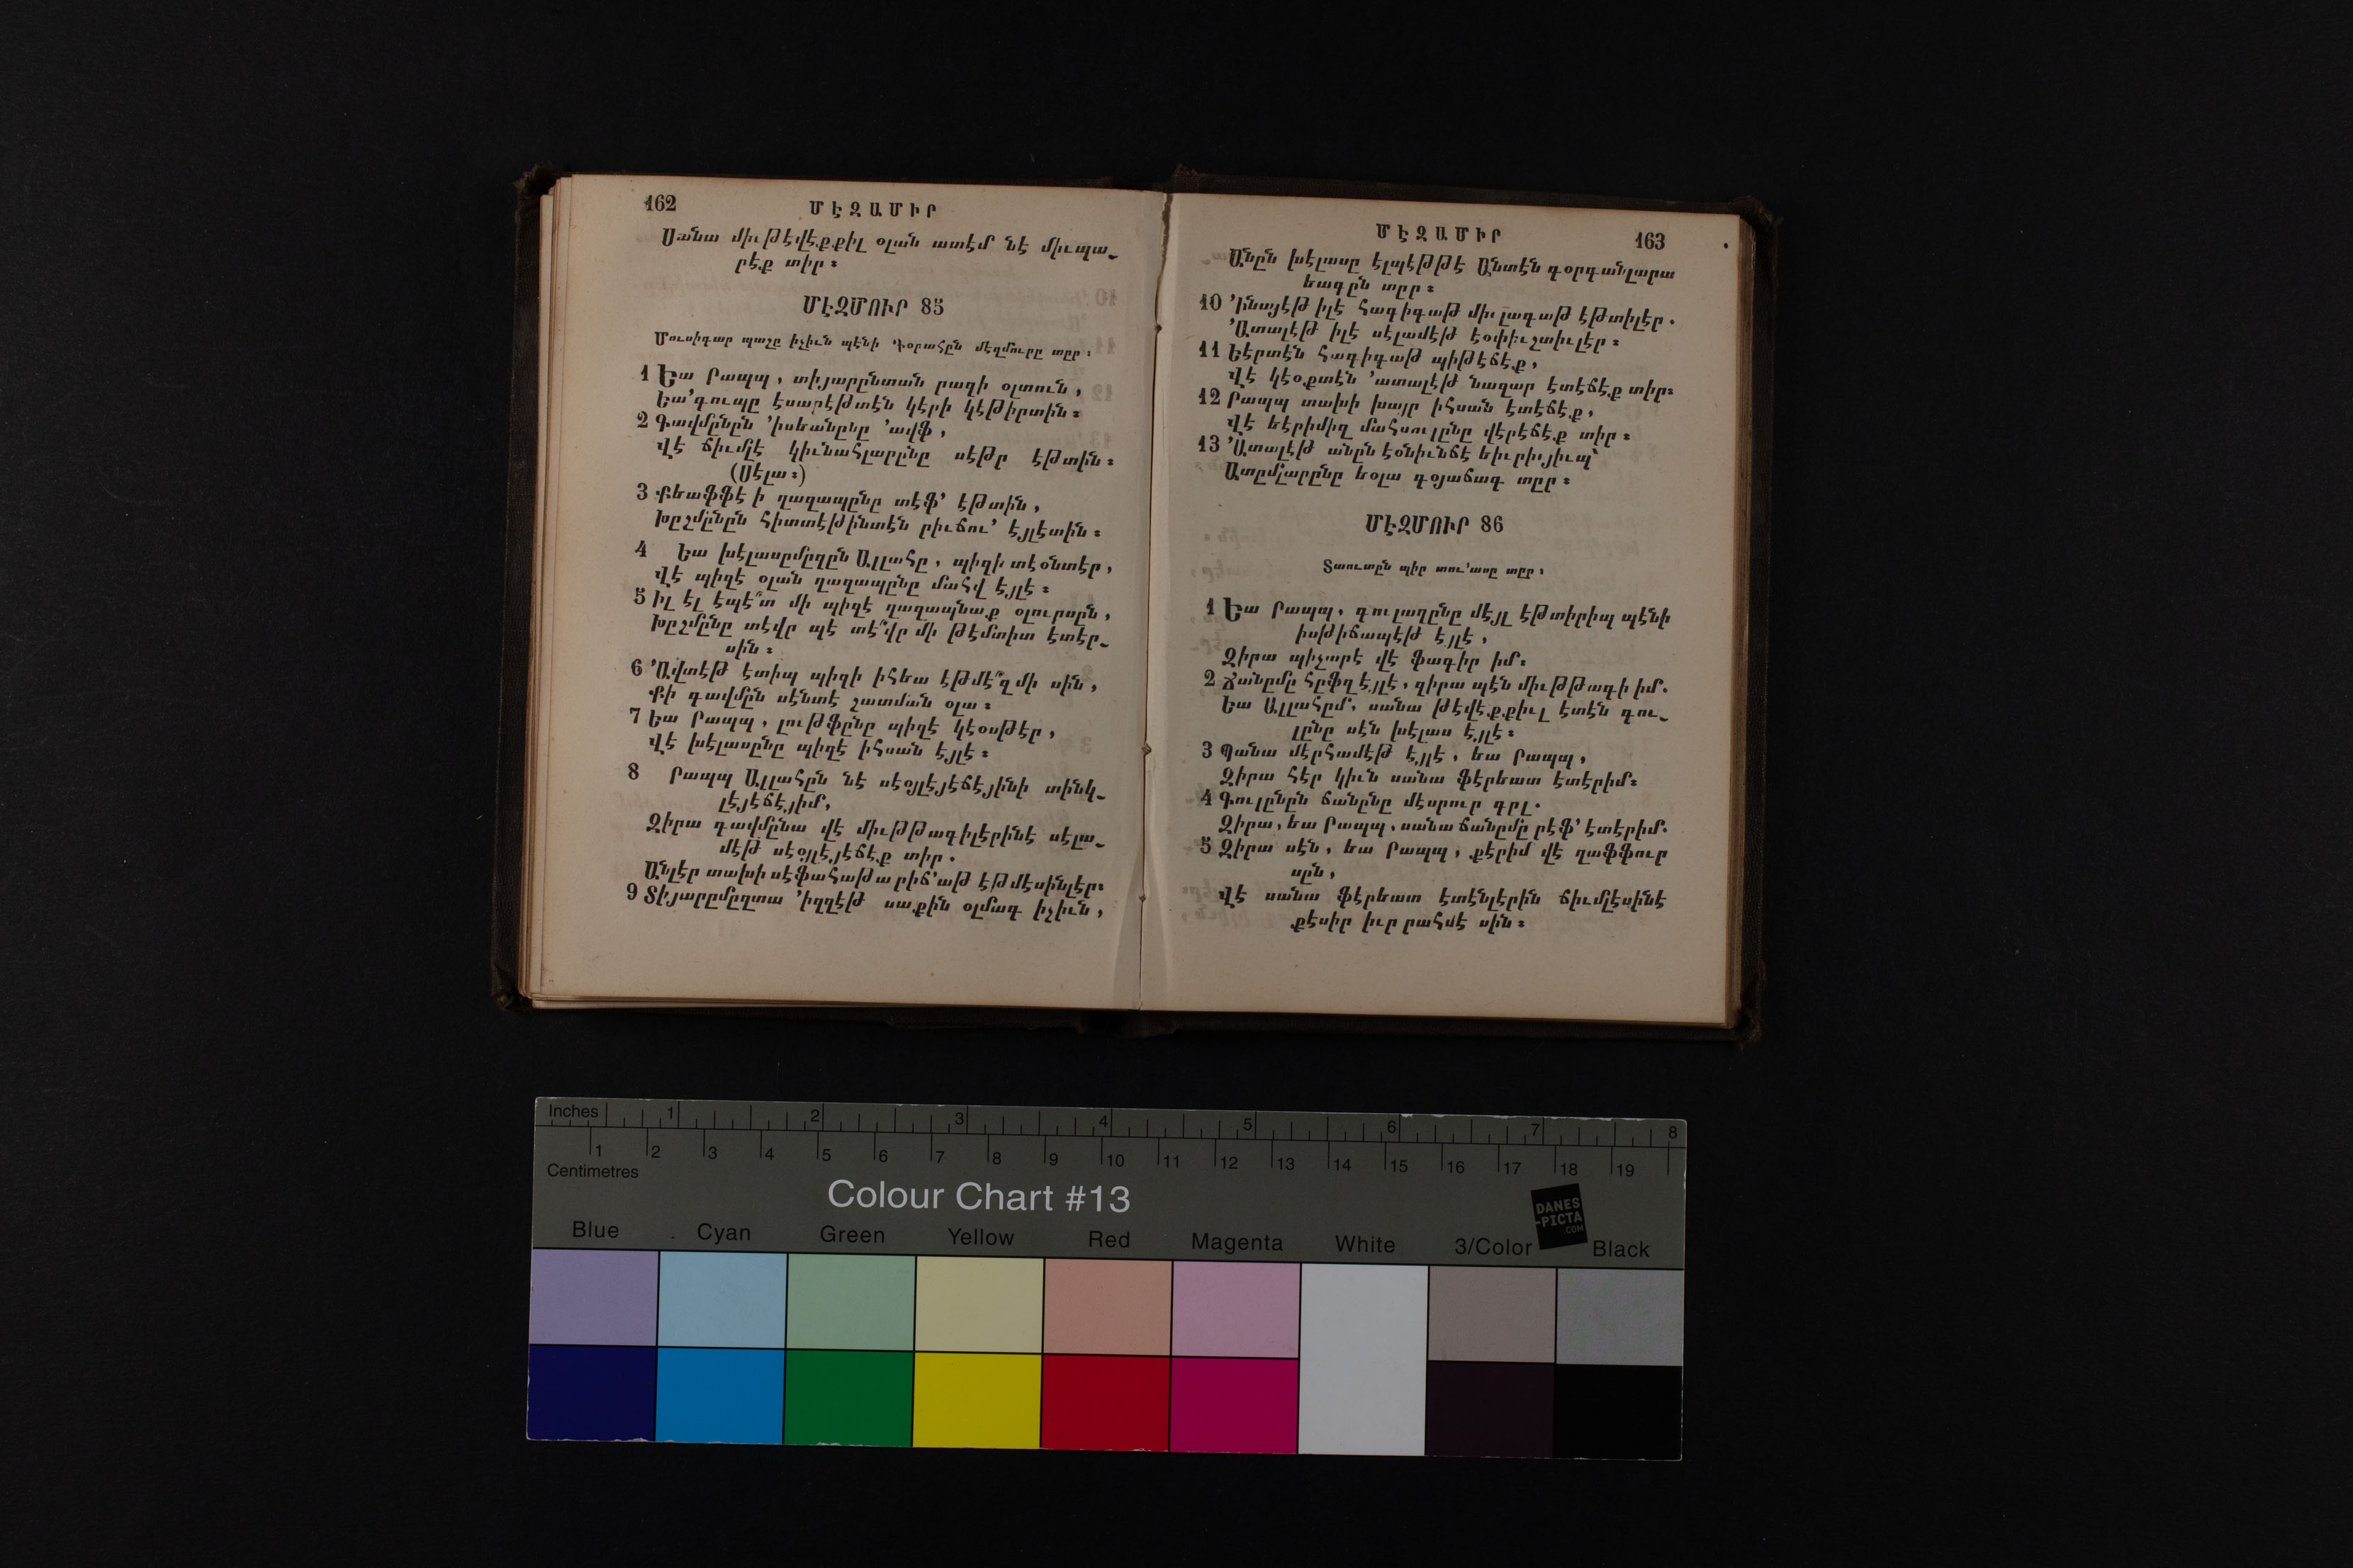 162
ՄԷԶԱՄԻՐ
Սանա միւթէվէքքիլ օլան ատէմ նէ միւպա֊
րէք տիր։
ՄԷԶՄՈՒՐ 85
Մուսիգար պաշը իչիւն պէնի Գօրահըն մէզմուրը տըր։
1 Եա Րապպ, տիյարընտան րազի օլտուն,
Եա՚գուպը էսարէթտէն կէրի կէթիրտին։
2 Գավմընըն ՚իսեանընը ՚ավֆ,
Վէ ճիւմլէ կիւնահլարընը սէթր էթտին։
(Սէլա։)
3 Քեաֆֆէի ղազապընը տէֆ՚ էթտին,
Խըշմընըն հիտտէթինտէն րիւճու՚ էյլէտին։
4 Եա խէլասըմըզըն Ալլահը, պիզի տէօնտէր,
Վէ պիզէ օլան ղազապընը մահվ էյլէ։
5 Իլ էլ էպէ՞տ մի պիզէ ղազապնաք օլուրսըն,
Խըշմընը տէվր պէ տէ՞վր մի թէմտիտ էտէր֊
սին։
6 ՚Ավտէթ էտիպ պիզի իհեա էթմէ՞զ մի սին,
Քի գավմըն սէնտէ շատման օլա։
7 Եա Րապպ, լութֆընը պիզէ կէօսթէր,
Վէ խէլասընը պիզէ իհսան էյլէ։
8 Րապպ Ալլահըն նէ սէօյլէյէճէյինի տինկ֊
լէյէճէյիմ,
Զիրա գավմընա վէ միւթթագիլէրինէ սէլա֊
մէթ սէօյլէյէճէք տիր.
Անլէր տախի սէֆահաթա րիճ՚աթ էթմէսինլէր։
9 Տիյարըմըզտա ՚իզզէթ սաքին օլմագ իչիւն,
ՄԷԶԱՄԻՐ
163
Անըն խէլասը էլպէթթէ Անտէն գօրգանլարա
եագըն տըր։
10 ՚Ինայէթ իլէ հագիգաթ միւլագաթ էթտիլէր.
՚Ատալէթ իլէ սէլամէթ էօփիւշտիւլէր։
11 Եէրտէն հագիգաթ պիթէճէք,
Վէ կէօքտէն ՚ատալէթ նազար էտէճէք տիր։
12 Րապպ տախի խայր իհսան էտէճէք,
Վէ եէրիմիզ մահսուլընը վէրէճէք տիր։
13 ՚Ատալէթ անըն էօնիւնճէ եիւրիւյիւպ՝
Ատըմլարընը եօլա գօյաճագ տըր։
ՄԷԶՄՈՒՐ 86
Տաուտըն պիր տու՚ասը տըր։
1 Եա Րապպ, գուլաղընը մէյլ էթտիրիպ պէնի
իսթիճապէթ էյլէ,
Զիրա պիչարէ վէ ֆագիր իմ։
2 Ճանըմը հըֆզ էյլէ, զիրա պէն միւթթագի իմ.
Եա Ալլահըմ, սանա թէվէքքիւլ էտէն գու֊
լընը սէն խէլաս էյլէ։
3 Պանա մէրհամէթ էյլէ, եա Րապպ,
Զիրա հէր կիւն սանա ֆէրեատ էտէրիմ։
4 Գուլընըն ճանընը մէսրուր գըլ.
Զիրա, եա Րապպ, սանա ճանըմը րէֆ՚ էտէրիմ.
5 Զիրա սէն, եա Րապպ, քէրիմ վէ ղաֆֆուր
սըն,
Վէ սանա ֆէրեատ էտէնլէրին ճիւմլէսինէ
քէսիր իւր րահմէ սին։
Inches 1 2 3 4 5 6 7 8
1 2 3 4 5 6 7 8 9 10 11 12 13 14 15 16 17 18 19
Centimetres
Colour Chart #13
DANES
-PICTA
.COM
Blue Cyan Green Yellow Red Magenta White 3/Color Black